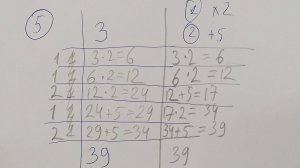 5 3 1 x2
2 +5
1 1 3·2=6 3·2=6
1 1 6·2=12 6·2=12
2 1 12·2=24 12+5=17
1 2 24+5=29 17·2=34
2 2 29+5=34 34+5=39
39 39